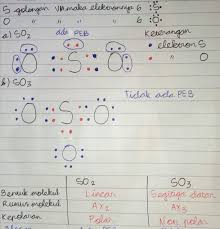 S golongan VIA maka elektronnya 6 :S:
O " " " 6 :O:
a) SO₂ ada PEB Keterangan
• elektron S
• " O
O S O
b) SO₃
Tidak ada PEB
O S O
O
SO₂ SO₃
Bentuk molekul Linear Segitiga datar
Rumus molekul AX₂ AX₃
Kepolaran Polar Non polar